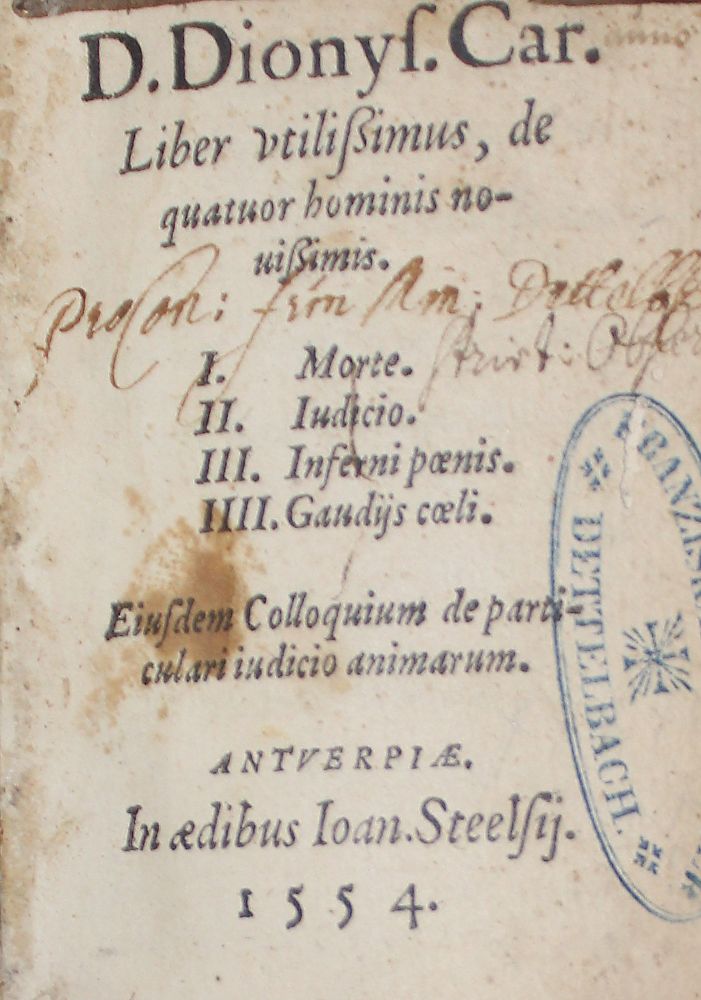 D. Dionyſ. Car.
Liber vtilißimus, de
quatuor hominis no-
uißimis.
I. Morte.
II. Iudicio.
III. Inferni pœnis.
IIII. Gaudijs cœli.
Eiuſdem Colloquium de parti-
culari iudicio animarum.
ANTVERPIÆ.
In ædibus Ioan. Steelſij.
1554.
DETTELBACH.